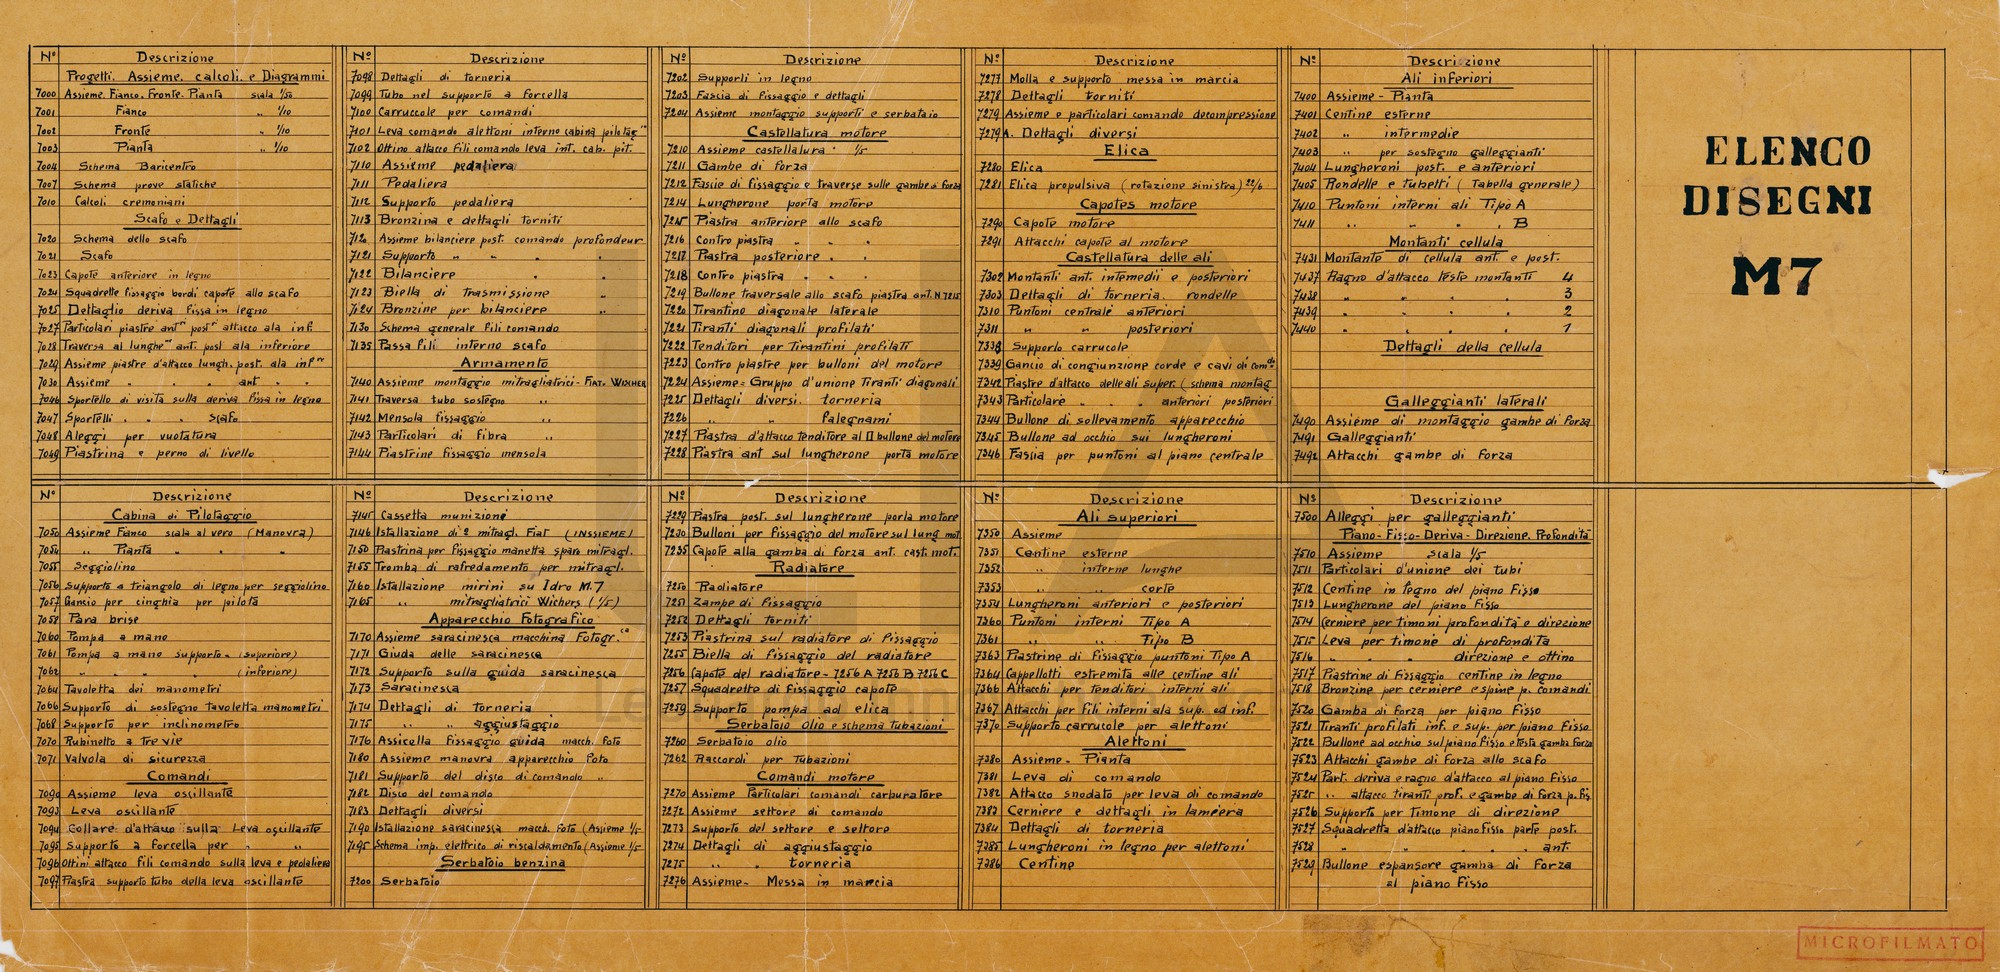 Nº Descrizione
Progetti. Assieme. calcoli. e Diagrammi
7000 Assieme. Fianco. Fronte. Pianta scala 1/50
7001 Fianco " 1/10
7002 Fronte " 1/10
7003 Pianta " 1/10
7004 Schema Baricentro
7007 Schema prove statiche
7010 Calcoli cremoniani
Scafo e Dettagli
7020 Schema dello scafo
7021 Scafo
7023 Capote anteriore in legno
7024 Squadrette fissaggio bordi capote allo scafo
7025 Dettaglio deriva fissa in legno
7027 Particolari piastre antri postri attacco ala inf.
7028 Traversa al lunghe ant. post ala inferiore
7029 Assieme piastre d'attacco lungh. post. ala infre
7030 Assieme " " " ant " "
7046 Sportello di visita sulla deriva fissa in legno
7047 Sportelli " " " scafo
7048 Aleggi per vuotatura
7049 Piastrina e perno di livello
Nº Descrizione
Cabina di Pilotaggio
7050 Assieme Fianco scala al vero (Manovra)
7054 " Pianta " " "
7055 Seggiolino
7056 Supporto a triangolo di legno per seggiolino
7057 Gancio per cinghia per pilota
7058 Para brise
7060 Pompa a mano
7061 Pompa a mano supporto - (superiore)
7062 " " " " (inferiore)
7064 Tavoletta dei manometri
7066 Supporto di sostegno tavoletta manometri
7068 Supporto per inclinometro
7070 Rubinetto a tre vie
7071 Valvola di sicurezza
Comandi
7090 Assieme leva oscillante
7093 Leva oscillante
7094 Collare d'attacco sulla Leva oscillante
7095 Supporto a forcella per " "
7096 Ottini attacco fili comando sulla leva e pedaliera
7097 Piastra supporto tubo della leva oscillante
Nº Descrizione
7098 Dettagli di torneria
7099 Tubo nel supporto a forcella
7100 Carruccole per comandi
7101 Leva comando alettoni interno cabina pilotag.
7102 Ottino attacco fili comando leva int. cab. pit.
7110 Assieme pedaliera
7111 Pedaliera
7112 Supporto pedaliera
7113 Bronzina e dettagli torniti
7120 Assieme bilanciere post. comando profondeur
7121 Supporto " " " "
7122 Bilanciere " "
7123 Biella di Trasmissione "
7124 Bronzine per bilanciere "
7130 Schema generale fili comando
7135 Passa fili interno scafo
Armamento
7140 Assieme montaggio mitragliatrici - Fiat. Wicher
7141 Traversa tubo sostegno "
7142 Mensola fissaggio "
7143 Particolari di fibra "
7144 Piastrine fissaggio mensola
Nº Descrizione
7145 Cassetta munizioni
7146 Istallazione di 2 mitragl. Fiat (INSSIEME)
7150 Piastrina per fissaggio manetta sparo mitragl.
7155 Tromba di rafredamento per mitragl.
7160 Istallazione mirini su Idro M.7
7165 " mitragliatrici Wichers (1/5)
Apparecchio Fotografico
7170 Assieme saracinesca macchina Fotogr.ca
7171 Giuda delle saracinesca
7172 Supporto sulla guida saracinesca
7173 Saracinesca
7174 Dettagli di torneria
7175 " " aggiustaggio
7176 Assicella fissaggio guida macch. foto
7180 Assieme manovra apparecchio foto
7181 Supporto del disco di comando "
7182 Disco del comando
7183 Dettagli diversi
7190 Istallazione saracinesca macch. foto (Assieme 1/5-
7195 Schema imp. elettrico di riscaldamento (Assieme 1/5-
Serbatoio benzina
7200 Serbatoio
Nº Descrizione
7202 Supporti in legno
7203 Fascia di fissaggio e dettagli
7204 Assieme montaggio supporti e serbatoio
Castellatura motore
7210 Assieme castellatura " 1/5
7211 Gambe di forza
7212 Fascie di fissaggio e traverse sulle gambe di forza
7214 Lungherone porta motore
7215 Piastra anteriore allo scafo
7216 Contro piastra " " "
7217 Piastra posteriore " "
7218 Contro piastra " "
7219 Bullone traversale allo scafo piastra ant. N 7215
7220 Tirantino diagonale laterale
7221 Tiranti diagonali profilati
7222 Tenditori per Tirantini profilati
7223 Contro piastre per bulloni del motore
7224 Assieme = Gruppo d'unione Tiranti diagonali
7225 Dettagli diversi. torneria
7226 " " falegnami
7227 Piastra d'attacco tenditore al □ bullone del motore
7228 Piastra ant sul lungherone porta motore
Nº Descrizione
7229 Piastra post. sul lungherone porta motore
7230 Bulloni per fissaggio del motore sul lung mot
7235 Capote alla gamba di forza ant. cast. mot.
Radiatore
7250 Radiatore
7251 Zampe di fissaggio
7252 Dettagli torniti
7253 Piastrina sul radiatore di fissaggio
7255 Biella di fissaggio del radiatore
7256 Capote del radiatore - 7256 A 7256 B 7256 C
7257 Squadrette di fissaggio capote
7259 Supporto pompa ad elica
Serbatoio Olio e schema tubazioni
7260 Serbatoio olio
7262 Raccordi per Tubazioni
Comandi motore
7270 Assieme Particolari comandi carburatore
7272 Assieme settore di comando
7273 Supporto del settore e settore
7274 Dettagli di aggiustaggio
7275 " " torneria
7276 Assieme - Messa in marcia
Nº Descrizione
7277 Molla e supporto messa in marcia
7278 Dettagli torniti
7279 Assieme e particolari comando decompressione
7279A. Dettagli diversi
Elica
7280 Elica
7281 Elica propulsiva (rotazione sinistra) 22/6
Capotes motore
7290 Capote motore
7291 Attacchi capote al motore
Castellatura delle ali
7302 Montanti ant. intemedii e posteriori
7303 Dettagli di torneria. rondelle
7310 Puntoni centrale anteriori
7311 " " posteriori
7338 Supporto carrucole
7339 Gancio di congiunzione corde e cavi di com.do
7342 Piastre d'attacco delle ali super. (schema montag
7343 Particolare " " " anteriori posteriori
7344 Bullone di sollevamento apparecchio
7345 Bullone ad occhio sui lungheroni
7346 Fascia per puntoni al piano centrale
Nº Descrizione
Ali superiori
7350 Assieme
7351 Centine esterne
7352 " interne lunghe
7353 " " corte
7354 Lungheroni anteriori e posteriori
7360 Puntoni interni Tipo A
7361 " " Tipo B
7363 Piastrine di fissaggio puntoni Tipo A
7364 Cappellotti estremità alle centine ali
7366 Attacchi per tenditori interni ali
7367 Attacchi per fili interni ala sup. ed inf.
7370 Supporto carrucole per alettoni
Alettoni
7380 Assieme - Pianta
7381 Leva di comando
7382 Attacco snodato per leva di comando
7383 Cerniere e dettagli in lamiera
7384 Dettagli di torneria
7385 Lungheroni in legno per alettoni
7386 Centine
Nº Descrizione
Ali inferiori
7400 Assieme - Pianta
7401 Centine esterne
7402 " intermedie
7403 " per sostegno galleggianti
7404 Lungheroni post. e anteriori
7405 Rondelle e tubetti (Tabella generale)
7410 Puntoni interni ali Tipo A
7411 " " " " B
Montanti cellula
7431 Montante di cellula ant. e post.
7437 Ragno d'attacco teste montanti 4
7438 " " " " 3
7439 " " " " 2
7440 " " " " 1
Dettagli della cellula
Galleggianti laterali
7490 Assieme di montaggio gambe di forza
7491 Galleggianti
7492 Attacchi gambe di forza
Nº Descrizione
7500 Alleggi per galleggianti
Piano-Fisso-Deriva-Direzione. Profondità
7510 Assieme scala 1/5
7511 Particolari d'unione dei tubi
7512 Centine in legno del piano fisso
7513 Lungherone del piano fisso
7514 Cerniere per timoni profondità e direzione
7515 Leva per timone di profondita
7516 " " " direzione e ottino
7517 Piastrine di fissaggio centine in legno
7518 Bronzine per cerniere e spine p. comandi
7520 Gamba di forza per piano fisso
7521 Tiranti profilati inf. e sup. per piano fisso
7522 Bullone ad occhio sul piano fisso e testa gamba forza
7523 Attacchi gambe di forza allo scafo
7524 Part. deriva e ragno d'attacco al piano fisso
7525 " attacco tiranti prof. e gambe di forza p. fis.
7526 Supporto per timone di direzione
7527 Squadretta d'attacco piano fisso parte post.
7528 " " " " ant
7529 Bullone espansore gamba di forza
al piano fisso
ELENCO
DISEGNI
M7
MICROFILMATO